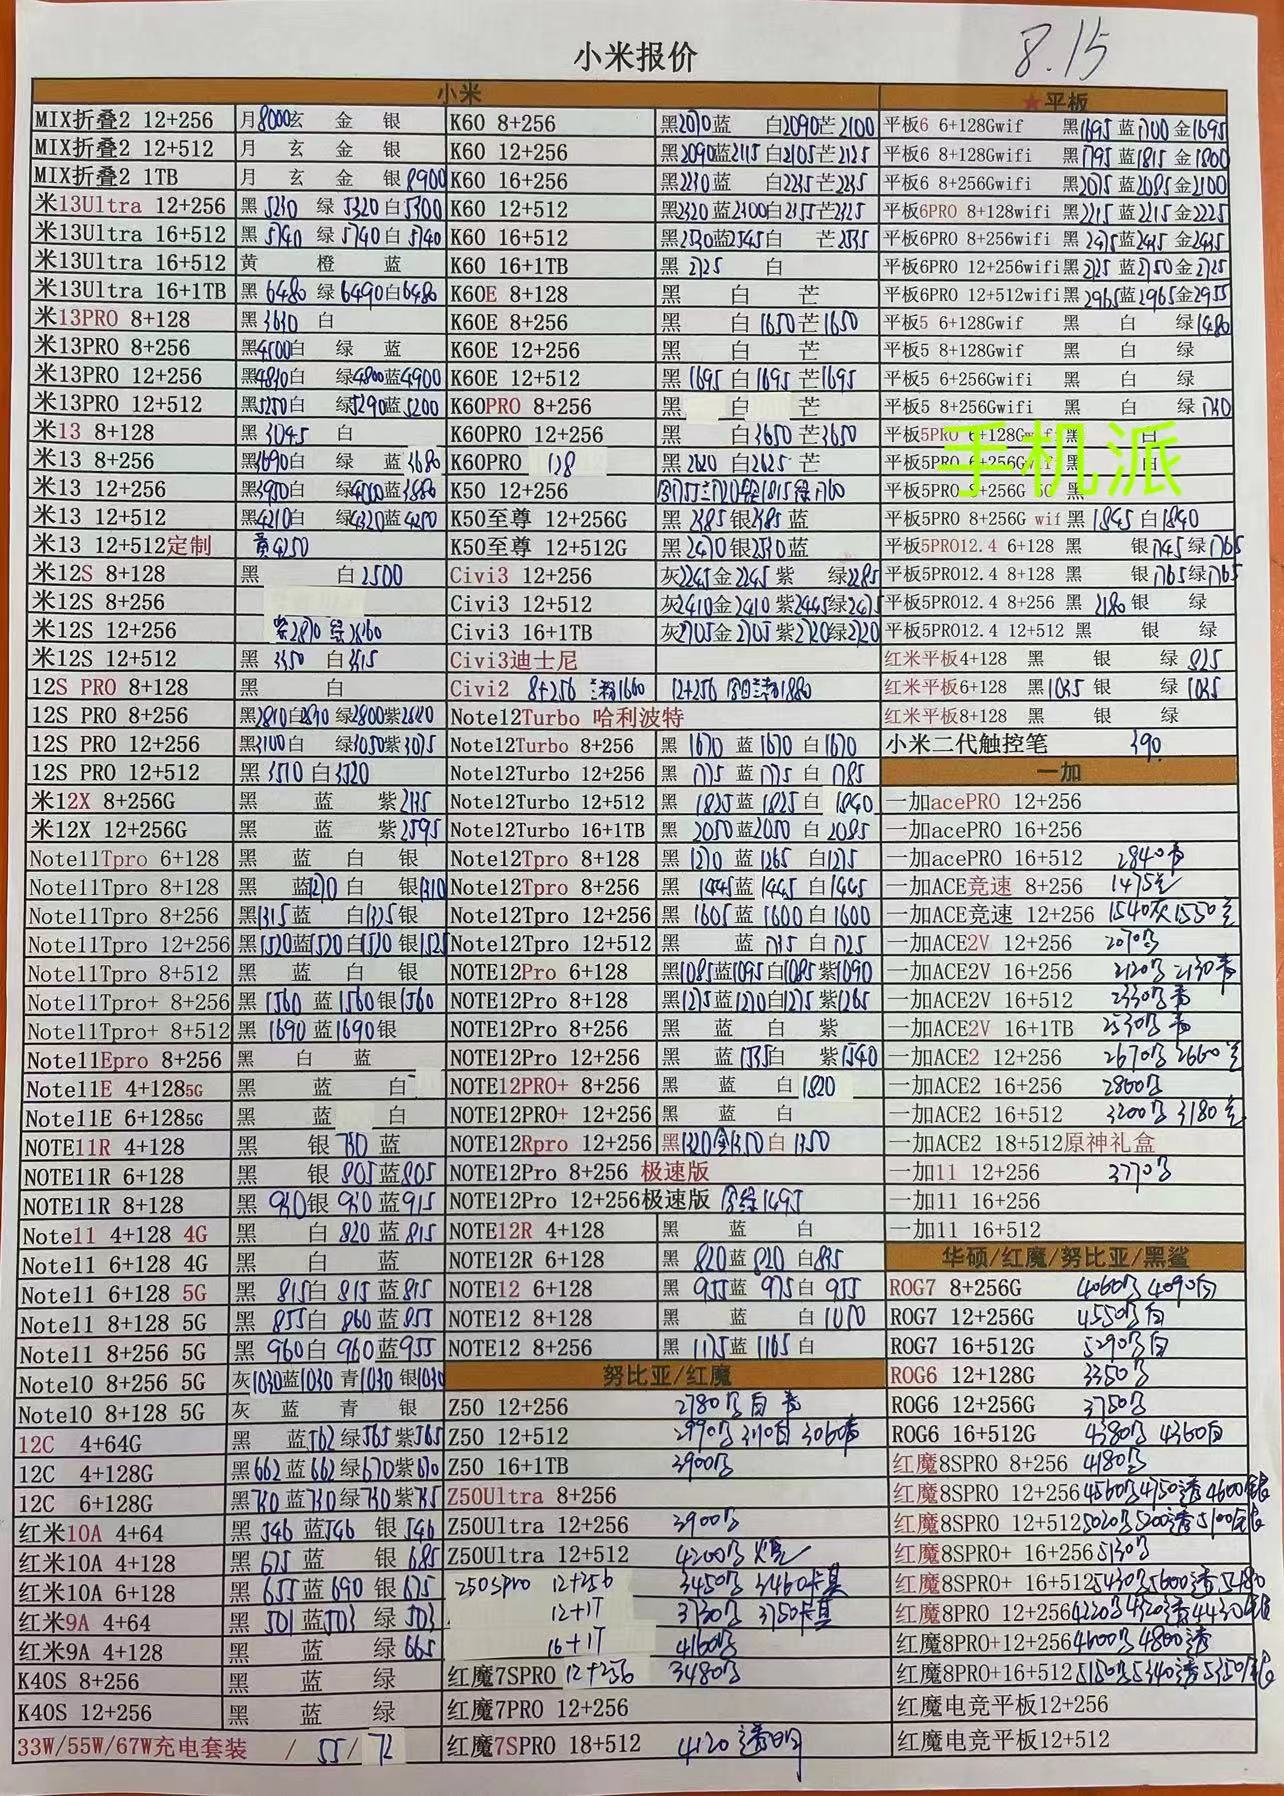 8.15
小米报价
小米
MIX折叠2 12+256 月8000玄 金 银
MIX折叠2 12+512 月 玄 金 银
MIX折叠2 1TB 月 玄 金 银8900
米13Ultra 12+256 黑 5230 绿 5320 白5300
米13Ultra 16+512 黑 5740 绿 5740 白 5740
米13Ultra 16+512 黄 橙 蓝
米13Ultra 16+1TB 黑 6480 绿 6490白6480
米13PRO 8+128 黑3630 白
米13PRO 8+256 黑4500白 绿 蓝
米13PRO 12+256 黑4810白 绿4800蓝4900
米13PRO 12+512 黑5250白 绿5290蓝5200
米13 8+128 黑 3045 白
米13 8+256 黑3690白 绿 蓝3680
米13 12+256
米13 12+512 黑4210白 绿4320蓝4250
米13 12+512定制 黄4250
米12S 8+128 黑 白2500
米12S 8+256
米12S 12+256
米12S 12+512 黑 3350 白
12S PRO 8+128 黑 白
12S PRO 8+256
12S PRO 12+256 黑3100白 绿3050紫3075
12S PRO 12+512 黑 3510 白3520
米12X 8+256G 黑 蓝 紫
米12X 12+256G 黑 蓝 紫2595
Note11Tpro 6+128 黑 蓝 白 银
Note11Tpro 8+128 黑 蓝1270 白 银1310
Note11Tpro 8+256 黑1315蓝 白1325银
Note11Tpro 12+256 黑1520蓝1520白1520 银1525
Note11Tpro 8+512 黑 蓝 白 银
Note11Tpro+ 8+256 黑 1560 蓝 1560银1560
Note11Tpro+ 8+512 黑 1690 蓝1690银
Note11Epro 8+256 黑 白 蓝
Note11E 4+1285G 黑 蓝 白
Note11E 6+1285G 黑 蓝 白
NOTE11R 4+128 黑 银 730 蓝
NOTE11R 6+128 黑 银 805蓝805
NOTE11R 8+128 黑 银 蓝915
Note11 4+128 4G 黑 白 820 蓝 815
Note11 6+128 4G 黑 白 蓝
Note11 6+128 5G 黑 815白 815 蓝815
Note11 8+128 5G 黑 855白 860 蓝855
Note11 8+256 5G 黑 960白 960蓝955
Note10 8+256 5G 灰1030蓝1030 青1030 银1030
Note10 8+128 5G 灰 蓝 青 银
12C 4+64G 黑 蓝562 绿565紫565
12C 4+128G 黑662 蓝 662 绿670紫670
12C 6+128G 黑730 蓝730绿730 紫735
红米10A 4+64 黑 546 蓝546 银 546
红米10A 4+128 黑 675 蓝 银 685
红米10A 6+128 黑 655 蓝690 银 675
红米9A 4+64 黑 501 蓝503 绿 503
红米9A 4+128 黑 蓝 绿 665
K40S 8+256 黑 蓝 绿
K40S 12+256 黑 蓝 绿
33W/55W/67W充电套装 / 55/ 72
K60 8+256 黑2070蓝 白2090芒2100
K60 12+256 黑2090蓝2115白2105芒2125
K60 16+256 黑2230 蓝 白2235芒2235
K60 12+512 黑2320 蓝2300白2355芒2325
K60 16+512 黑2530蓝2545白 芒2535
K60 16+1TB 黑 2725 白
K60E 8+128 黑 白 芒
K60E 8+256 黑 白1650芒1650
K60E 12+256 黑 白 芒
K60E 12+512 黑 1695 白1695 芒1695
K60PRO 8+256 黑 白 芒
K60PRO 12+256 黑 白3650芒3650
K60PRO 128 黑2620 白2625 芒
K50 12+256
K50至尊 12+256G 黑 2385银2385 蓝
K50至尊 12+512G 黑 2470银2530蓝
Civi3 12+256 灰2245金2245 紫 绿2285
Civi3 12+512
Civi3 16+1TB 灰2705金2705 紫2720绿2720
Civi3迪士尼
Civi2 8+256 兰粉1660 12+256
Note12Turbo 哈利波特
Note12Turbo 8+256 黑 1670 蓝 1670 白1670
Note12Turbo 12+256 黑 1775 蓝 1775 白 1785
Note12Turbo 12+512 黑 1825 蓝 1825 白 1840
Note12Turbo 16+1TB 黑 2050 蓝2050 白 2085
Note12Tpro 8+128 黑 1270 蓝 1265 白1275
Note12Tpro 8+256 黑 1445蓝1445 白1445
Note12Tpro 12+256 黑 1605蓝 1600 白 1600
Note12Tpro 12+512 黑 蓝 1735 白1725
NOTE12Pro 6+128 黑1085蓝1095白1085紫1090
NOTE12Pro 8+128 黑1275蓝1270白1275 紫1265
NOTE12Pro 8+256 黑 蓝 白 紫
NOTE12Pro 12+256 黑 蓝1535白 紫1540
NOTE12PRO+ 8+256 黑 蓝 白 1820
NOTE12PRO+ 12+256 黑 蓝 白
NOTE12Rpro 12+256 黑1320金1350白 1350
NOTE12Pro 8+256 极速版
NOTE12Pro 12+256极速版
NOTE12R 4+128 黑 蓝 白
NOTE12R 6+128 黑 820蓝 820 白835
NOTE12 6+128 黑 955蓝 975白 955
NOTE12 8+128 黑 蓝 白
NOTE12 8+256 黑 1175蓝 1165 白
努比亚/红魔
Z50 12+256 2780 白
Z50 12+512
Z50 16+1TB 3900
Z50Ultra 8+256
Z50Ultra 12+256 3900
Z50Ultra 12+512 4200
Z50Spro 12+256 3450 3460
12+1T 3730 3750
16+1T 4160
红魔7SPRO 12+256 3480
红魔7PRO 12+256
红魔7SPRO 18+512 4120 透明
★平板
平板6 6+128Gwif 黑1695 蓝1700 金1695
平板6 8+128Gwifi 黑1795 蓝1815 金1800
平板6 8+256Gwifi 黑2075 蓝2085 金2100
平板6PRO 8+128wifi 黑2215 蓝2215 金2225
平板6PRO 8+256wifi 黑2475蓝2435 金2435
平板6PRO 12+256wifi黑2725 蓝2750金2725
平板6PRO 12+512wifi黑2965蓝2965金2955
平板5 6+128Gwif 黑 白 绿1480
平板5 8+128Gwif 黑 白 绿
平板5 6+256Gwifi 黑 白 绿
平板5 8+256Gwifi 黑 白 绿
平板5PRO 6+128Gwifi黑 白
平板5PRO 黑 白
手机派
平板5PRO 黑
平板5PRO 8+256G wif 黑 1845 白1840
平板5PRO12.4 6+128 黑 银1745绿1765
平板5PRO12.4 8+128 黑 银1765绿1765
平板5PRO12.4 8+256 黑 2180 银 绿
平板5PRO12.4 12+512 黑 银 绿
红米平板4+128 黑 银 绿 825
红米平板6+128 黑1035 银 绿 1035
红米平板8+128 黑 银 绿
小米二代触控笔 390
一加
一加acePRO 12+256
一加acePRO 16+256
一加acePRO 16+512 2840青
一加ACE竞速 8+256 1475
一加ACE竞速 12+256 1540灰1550
一加ACE2V 12+256 2070
一加ACE2V 16+256 2120 2130青
一加ACE2V 16+512 2330 青
一加ACE2V 16+1TB 2530 青
一加ACE2 12+256 2670 2660
一加ACE2 16+256 2860
一加ACE2 16+512 3200 3180
一加ACE2 18+512原神礼盒
一加11 12+256 3770
一加11 16+256
一加11 16+512
华硕/红魔/努比亚/黑鲨
ROG7 8+256G 4060 4090白
ROG7 12+256G 4550 白
ROG7 16+512G 5290 白
ROG6 12+128G 3350
ROG6 12+256G 3750
ROG6 16+512G 4380 4360白
红魔8SPRO 8+256 4180
红魔8SPRO 12+256 4560 4750透4600
红魔8SPRO 12+512 5020 5200透5100
红魔8SPRO+ 16+256 5130
红魔8SPRO+ 16+512 5430 5600透5480
红魔8PRO 12+256 4220 4320透4430
红魔8PRO+12+256 4600 4800透
红魔8PRO+16+512 5150 5340透5350
红魔电竞平板12+256
红魔电竞平板12+512